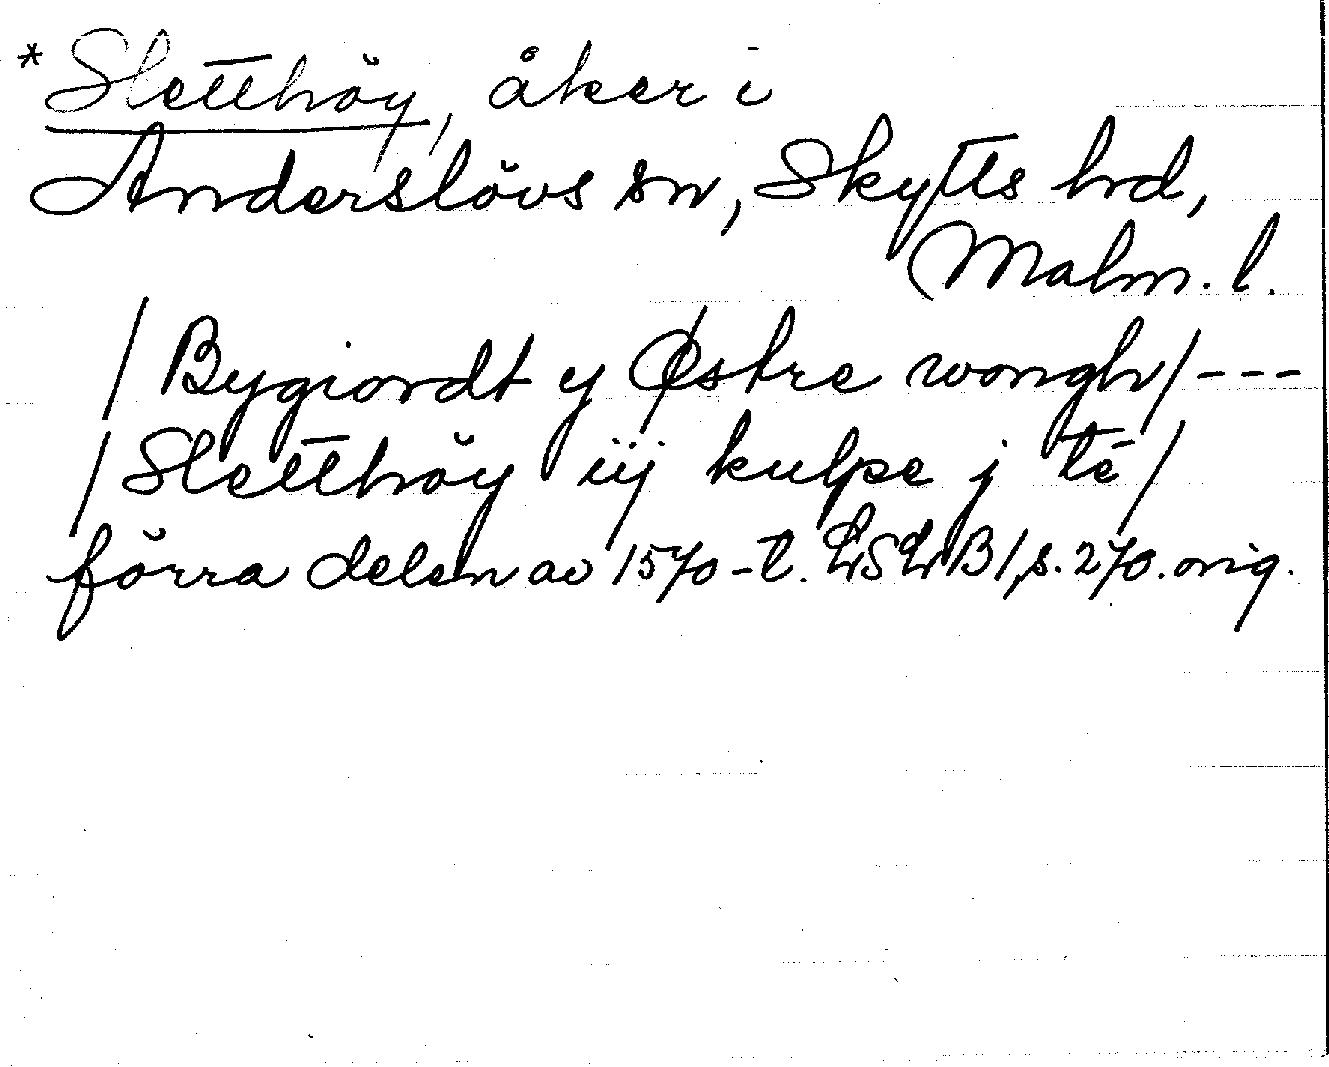 *Sletthöy, åker i
Anderslövs sn, Skytts hd,
Malm. l.
/Bygiordt y Østre wongh/---
/Sletthöy iij kulpe j té/
förra delen av 1570-t. LSLB1, s. 270. orig.